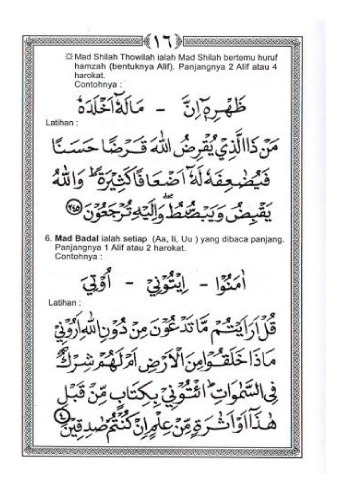 ١٦
Mad Shilah Thowilah ialah Mad Shilah bertemu huruf
hamzah (bentuknya Alif). Panjangnya 2 Alif atau 4
harokat.
Contohnya :
ظَهْرِهٖٓ اِنَّ - مَالَهٗٓ اَخْلَدَهٗ
Latihan :
مَنْ ذَا الَّذِيْ يُقْرِضُ اللّٰهَ قَرْضًا حَسَنًا
فَيُضٰعِفَهٗ لَهٗٓ اَضْعَافًا كَثِيْرَةً ۗ وَاللّٰهُ
يَقْبِضُ وَيَبْصُۣطُ وَاِلَيْهِ تُرْجَعُوْنَ ﴿٢٤٥﴾
6. Mad Badal ialah setiap (Aa, Ii, Uu ) yang dibaca panjang.
Panjangnya 1 Alif atau 2 harokat.
Contohnya :
اٰمَنُوْا - اِيْتُوْنِيْ - اُوْتِيَ
Latihan :
قُلْ اَرَاَيْتُمْ مَّا تَدْعُوْنَ مِنْ دُوْنِ اللّٰهِ اَرُوْنِيْ
مَاذَا خَلَقُوْا مِنَ الْاَرْضِ اَمْ لَهُمْ شِرْكٌ
فِى السَّمٰوٰتِ ۗ ائْتُوْنِيْ بِكِتَابٍ مِّنْ قَبْلِ
هٰذَآ اَوْ اَثٰرَةٍ مِّنْ عِلْمٍ اِنْ كُنْتُمْ صٰدِقِيْنَ ﴿٤﴾